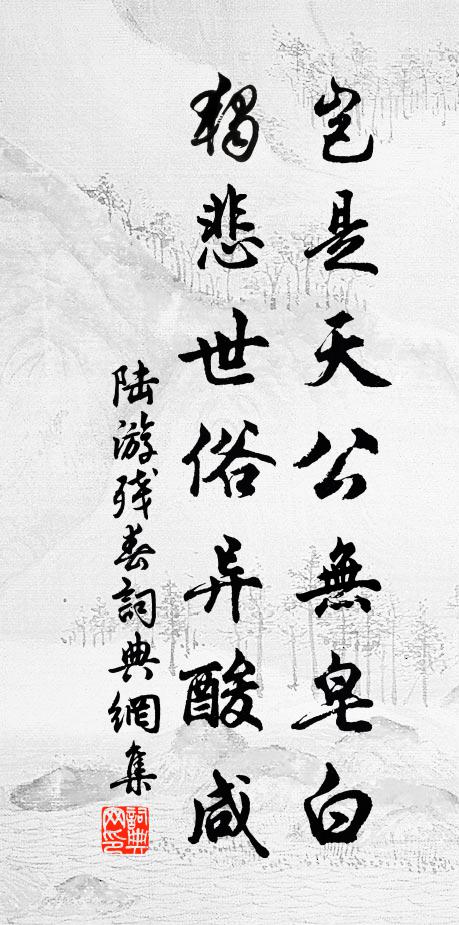 岂是天公無皂白
独悲世俗异酸咸
陆游残春詞典網集
詞典网印